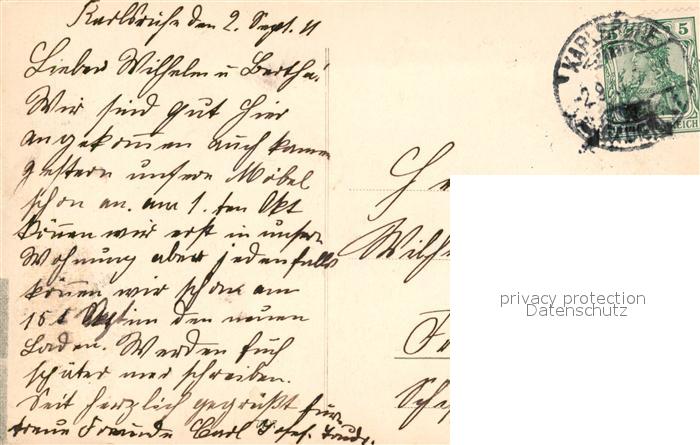 Karlsruhe den 2. Sept. 11
Lieber Wilhelm u Bertha!
Wir sind gut hier
angekommen auch kamen
gestern unsere Möbel
schon an. am 1. ten Okt
können wir erst in unsere
Wohnung aber jedenfalls
können wir schon am
15t in den neuen
Laden. Werden Euch
später mer schreiben.
Seit herzlich gegrüßt Eure
treue Freunde Carl Josef.
KARLSRUHE
-2.9
5
REICH
He
Wilh
privacy protection
Datenschutz